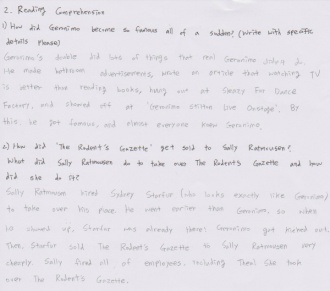 2. Reading Comprehension
1) How did Geronimo become so famous all of a sudden? (Write with specific
details please)
Geronimo's double did lots of things that real Geronimo didn't do.
He made bathroom advertisements, wrote an article that watching TV
is better than reading books, hang out at Cheesy For Dance
Factory, and showed off at 'Geronimo Stilton Live Onstage'. By
this, he got famous, and almost everyone knew Geronimo.
2) How did 'The Rodent's Gazette' get sold to Sally Ratmousen?
What did Sally Ratmousen do to take over The Rodent's Gazette and how
did she do it?
Sally Ratmousen hired Sydney Starfur (who looks exactly like Geronimo)
to take over his place. He went earlier than Geronimo, so when
he showed up, Starfur was already there! Geronimo got kicked out.
Then, Starfur sold The Rodent's Gazette to Sally Ratmousen very
cheaply. Sally fired all of employees, including Thea! She took
over The Rodent's Gazette.